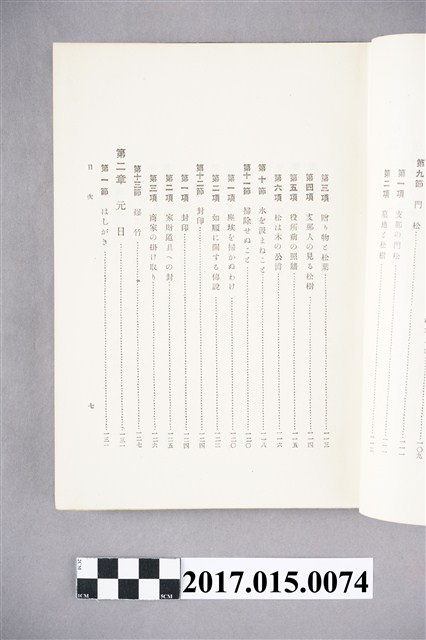 第九節 門松 一〇九
第一項 支那の門松 一一一
第二項 墓地と松樹 一一二
第三項 贈り物と松葉 一一三
第四項 支那人の見る松樹 一一四
第五項 役所前の照牆 一一五
第六項 松は木の公爵 一一六
第十節 水を汲まぬこと 一一八
第十一節 掃除せぬこと 一二〇
第一項 塵埃を掃かぬわけ 一二〇
第二項 如願に関する傳説 一二二
第十二節 封印 一二四
第一項 封印 一二四
第二項 家財道具への封 一二五
第三項 商家の掛け取り 一二六
第十三節 爆竹 一二七
第二章 元日 一三一
第一節 はしがき 一三一
目次
七
2CM
1CM
5CM
2017.015.0074